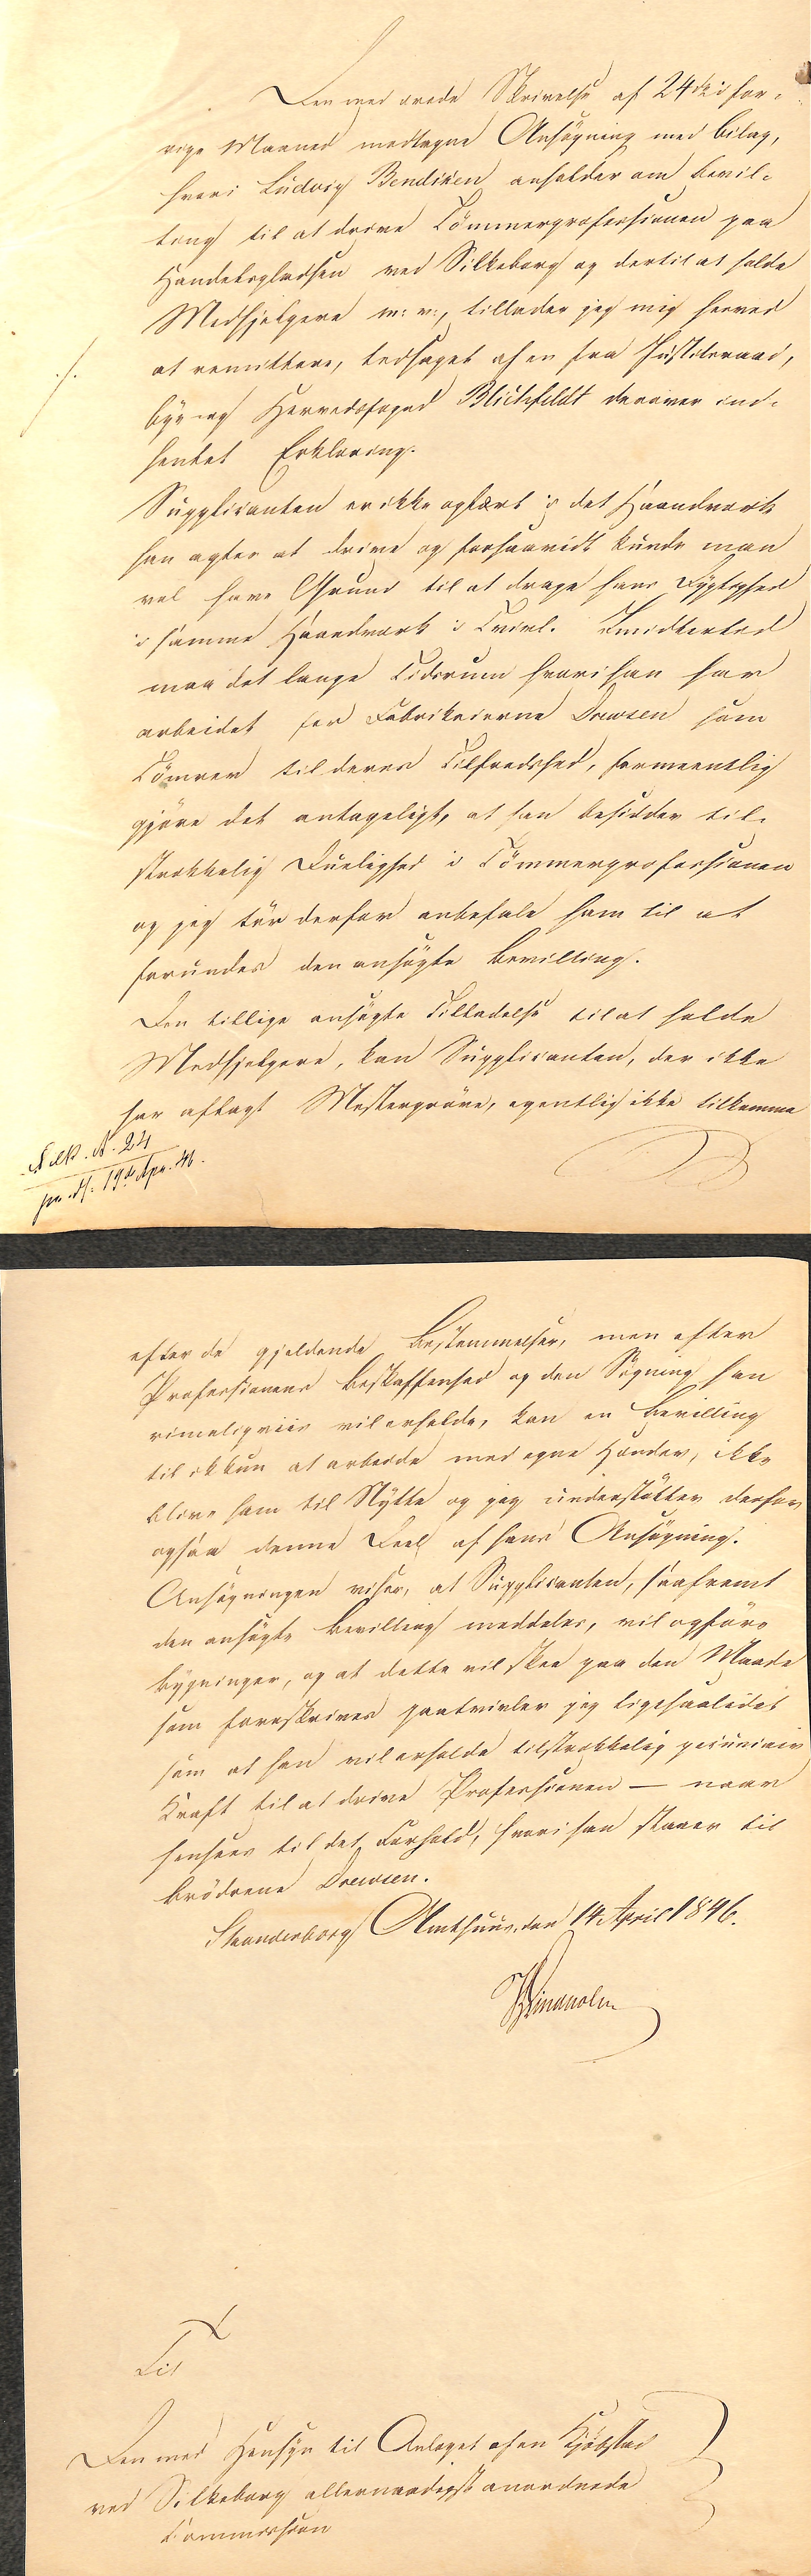 Den med ærede Skrivelse af 24de i for-
rige Maaned modtagne Ansøgning med Bilag,
hvori Ludvig Bendixen anholder om Bevil-
ling til at drive Tömmerprofessionen paa
Handelspladsen ved Silkeborg og dertil at holde
Medhjelpere m: v:, tillader jeg mig herved
./. at remittere, ledsaget af en fra Justitsraad,
By- og Herredsfoged Blichfeldt derover ind-
hentet Erklæring.
Supplicanten er ikke oplært i det Haandværk
han agter at drive og forsaavidt kunde man
vel have Grund til at drage hans Dygtighed
i samme Haandværk i Tvivl. Imidlertid
maa det lange Tidsrum hvori han har
arbeidet for Fabrikeierne Drewsen som
Tömrer til deres Tilfredshed, formeentlig
gjöre det antageligt, at han besidder til-
strækkelig Duelighed i Tömmerprofessionen
og jeg tör derfor anbefale ham til at
forundes den ansögte Bevilling.
Den tillige ansögte Tilladelse til at holde
Medhjelpere, kan Supplicanten, der ikke
har aflagt Mesterpröve, egentlig ikke tilkomme
Silk. N. 24
pr. d. 19de Apr. 46.
efter de gjeldende Bestemmelser, men efter
Professionens Beskaffenhed og den Sögning han
rimeligviis vil erholde, kan en Bevilling
til ikkun at arbeide med egne Hænder, ikke
blive ham til Nytte og jeg understötter derfor
ogsaa denne Deel af hans Ansögning.
Ansögningen viser, at Supplicanten, saafremt
den ansögte Bevilling meddeles, vil opföre
Bygninger, og at dette vil skee paa den Maade
som foreskrives paatvivler jeg ligesaalidet
som at han vil erholde tilstrækkelig pecuniair
Kraft til at drive Professionen — naar
hensees til det Forhold, hvori han staaer til
Brödrene Drewsen.
Skanderborg Amthuus, den 14 April 1846.
Til
Den med Hensyn til Anlæget af en Kjöbstad
ved Silkeborg allernaadigst anordnede
Commission